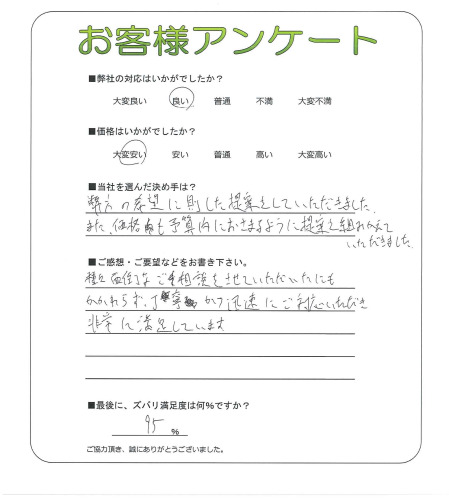 お客様アンケート
■弊社の対応はいかがでしたか？
大変良い 良い 普通 不満 大変不満
■価格はいかがでしたか？
大変安い 安い 普通 高い 大変高い
■当社を選んだ決め手は？
弊方の希望に則した提案をしていただきました。
また、価格面も予算内におさまるように提案を組みかえて
いただきました。
■ご感想・ご要望などをお書き下さい。
種々面倒なご相談をさせていただいたにも
かかわらず、丁寧かつ迅速にご対応いただき
非常に満足しています
■最後に、ズバリ満足度は何％ですか？
95 ％
ご協力頂き、誠にありがとうございました。